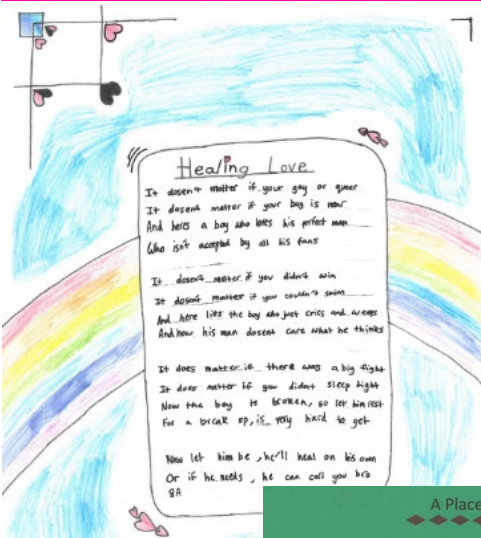 Healing Love
It dosen't matter if your gay or queer
It dosent matter if your bag is near
And heres a boy who loves his perfect man
Who isn't accepted by all his fans
It dosent matter if you didn't win
It dosent matter if you couldn't swim
And here lies the boy who just cries and weeps
And how his man dosent care what he thinks
It does matter if there was a big fight
It does matter if you didnt sleep tight
Now the boy is broken, so let him rest
For a break up, is very hard to get
Now let him be, he'll heal on his own
Or if he needs, he can call you bro
8A
A Place